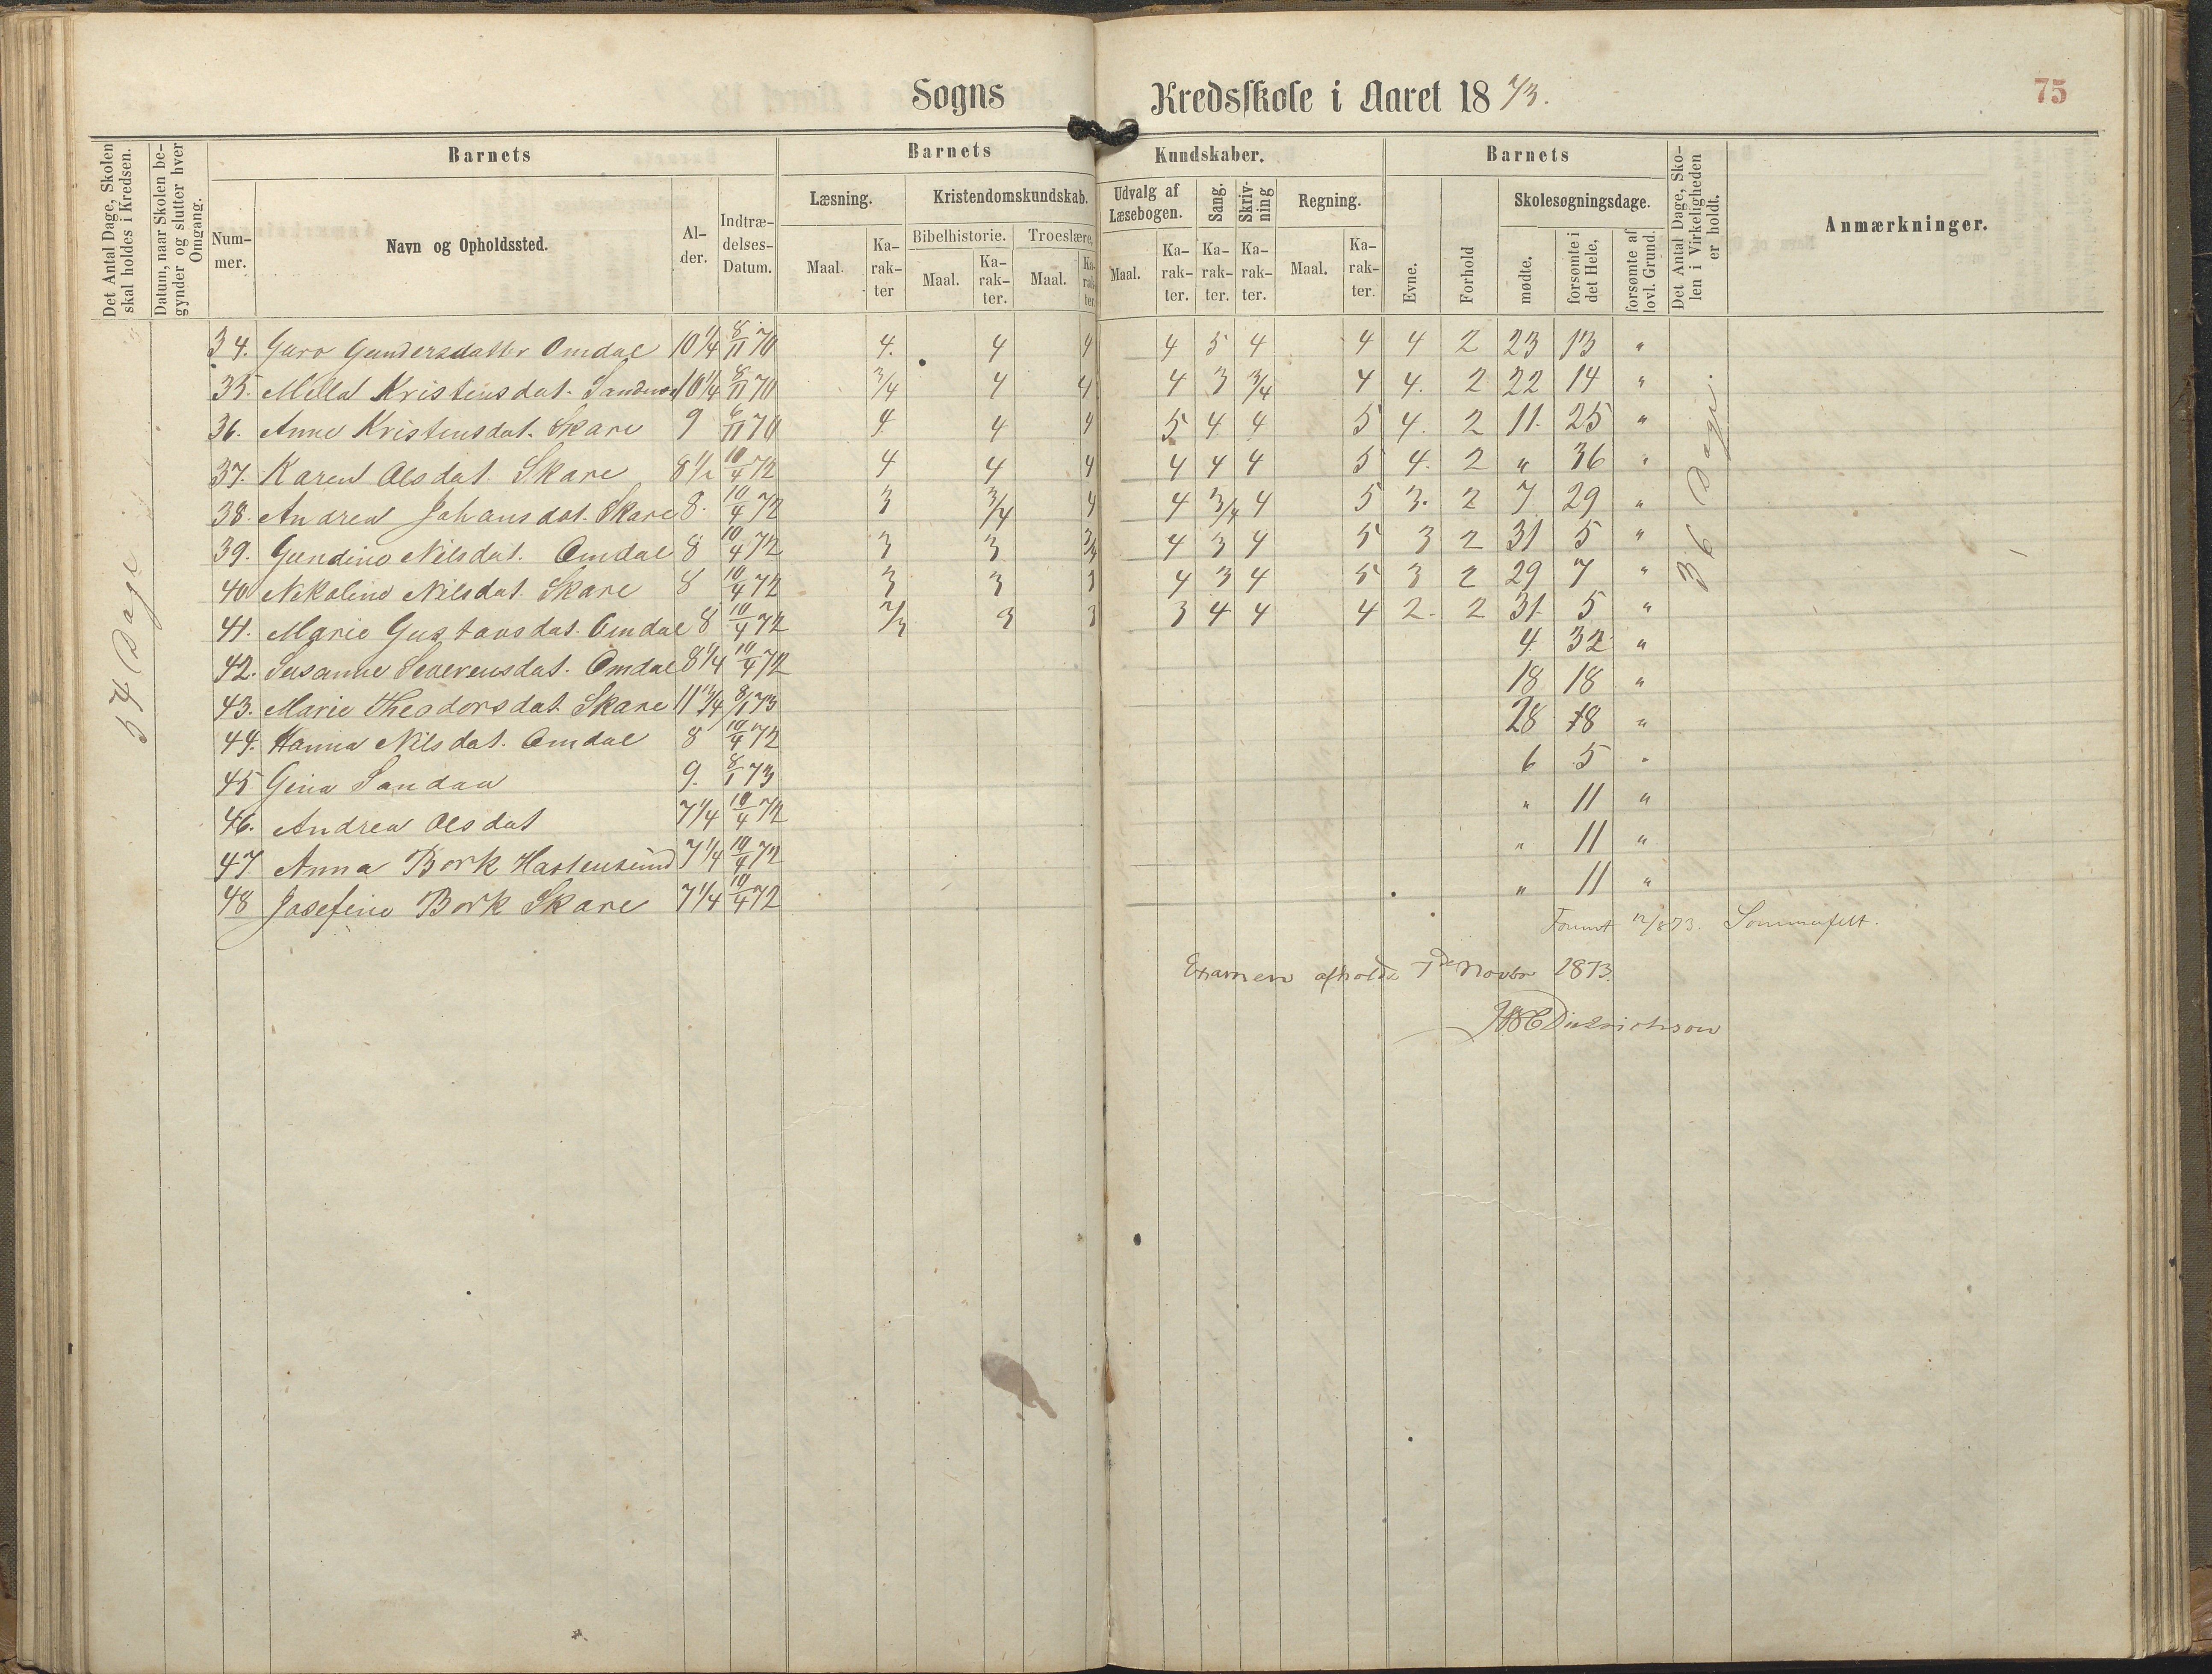 Sogns Kredsskole i Aaret 1873.
75
Det Antal Dage, Skolen skal holdes i Kredsen.
Datum, naar Skolen begynder og slutter hver Omgang.
Barnets
Barnets Kundskaber.
Barnets
Det Antal Dage, Skolen i Virkeligheden er holdt.
Anmærkninger.
Nummer.
Navn og Opholdssted.
Alder.
Indtrædelses-Datum.
Læsning.
Kristendomskundskab.
Udvalg af Læsebogen.
Sang.
Skrivning
Regning.
Evne.
Forhold
Skolesøgningsdage.
Bibelhistorie.
Troeslære,
Maal. Karakter
Maal. Karakter.
Maal. Karakter
Maal. Karakter.
Karakter.
Karakter.
Maal. Karakter.
mødte.
forsømte i det Hele,
forsømte af lovl. Grund.
54 Dage
36 Dage.
34. Guro Gundersdatter Omdal 10 1/4 8/11 70 4. 4 4 4 5 4 4 4 2 23 13 "
35. Mella Kristensdat. 10 1/4 8/11 70 3/4 4 4 4 3 3/4 4 4. 2 22 14 "
36. Anne Kristensdat. Skare 9 6/11 70 4 4 4 5 4 4 5 4. 2 11. 25 "
37. Karen Olsdat. Skare 8 1/2 10/4 72 4 4 4 4 4 4 5 4. 2 " 36 "
38. Andrea Johansdat. Skare 8. 10/4 72 3 3/4 4 4 3/4 4 5 3. 2 7 29 "
39. Gundine Nilsdat. Omdal 8 10/4 72 3 3 3/4 4 3 4 5 3 2 31 5 "
40 Nikoline Nilsdat. Skare 8 10/4 72 3 3 3 4 3 4 5 3 2 29 7 "
41. Marie Gustavsdat. Omdal 8 10/4 72 2/3 3 3 3 4 4 4 2. 2 31 5 "
42. Susanne Severensdat. Omdal 8 1/4 10/4 72 4. 32 "
43. Marie Theodorsdat. Skare 11 3/4 8/1 73 18 18 "
44. Hanna Nilsdat. Omdal 8 10/4 72 28 8 "
45 Gina Sandaa 9. 8/1 73 6 5 "
46. Andrea Olsdat 7 1/4 10/4 72 " 11 "
47 Anna Bork 7 1/4 10/4 72 " 11 "
48 Josefine Bork Skare 7 1/4 10/4 72 " 11 "
12/8 73. Sommerfelt.
Examen afholdt 7de Novbr 1873.
Diedrichson